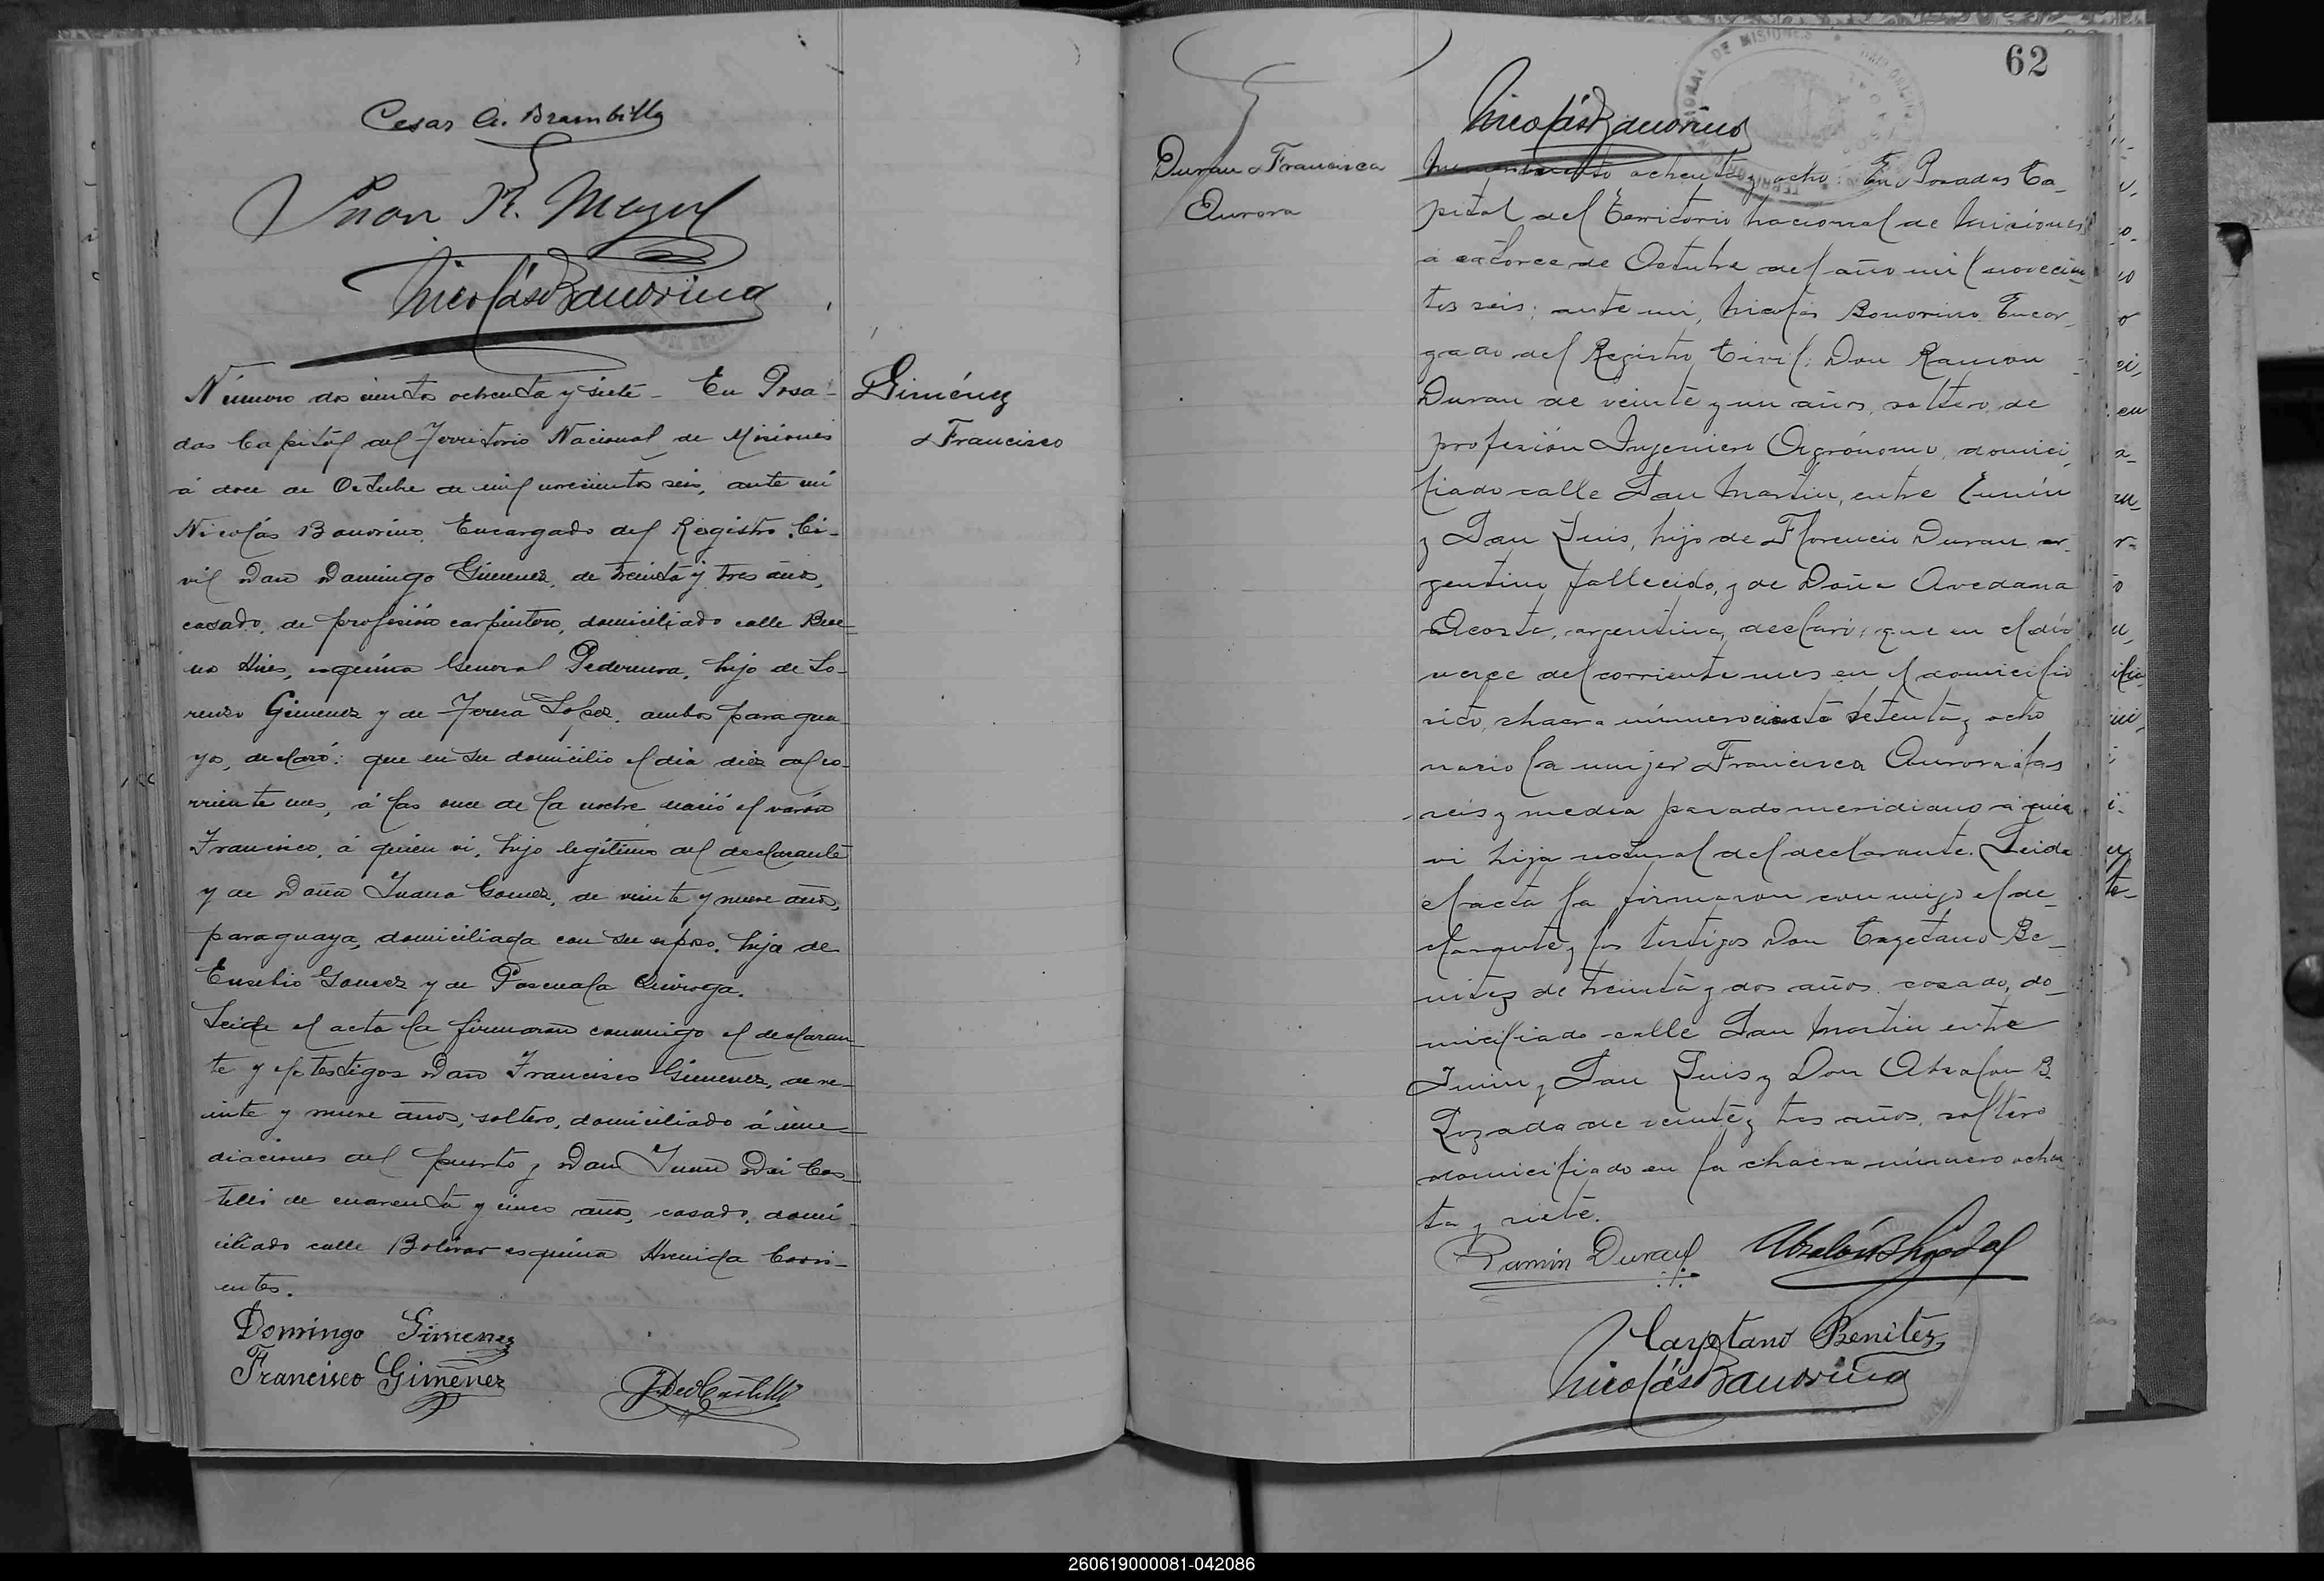 Cesar A. Brambilla
Juan R.
Nicolás Bonorino
Número doscientos ochenta y siete - En Posa-
das Capital del Territorio Nacional de Misiones
á doce de Octubre de mil novecientos seis, ante mi
Nicolás Bonorino, Encargado del Registro Ci-
vil Don Domingo Gimenez, de treinta y tres años,
casado, de profesión carpintero, domiciliado calle Bue-
nos Aires, esquina General Pedernera, hijo de Lo-
renzo Gimenez y de Teresa Lopez, ambos paragua-
yos, declaró: que en su domicilio el dia diez del co-
rriente mes, á las once de la noche nació el varón
Francisco, á quien vi, hijo legitimo del declarante
y de Doña Juana Gomez, de veinte y nueve años,
paraguaya, domiciliada con su esposo, hija de
Eusebio Gomez y de Pascuala Quiroga.
Leida el acta la firmaron conmigo el declaran-
te y los testigos Don Francisco Gimenez, de ve-
inte y nueve años, soltero, domiciliado á inme-
diaciones del puerto y Don Juan Dei Cas-
telli de cuarenta y cinco años, casado, domi-
ciliado calle Bolivar esquina Avenida Corri-
entes.
Domingo Gimenez
Francisco Gimenez
J Dei Castelli
Giménez
Francisco
62
Duran Francisca
Aurora
Nicolás Bonorino
ochenta y ocho: En Posadas Ca-
pital del Territorio nacional de Misiones
a catorce de Octubre del año mil novecien-
tos seis; ante mi, Nicolás Bonorino Encar-
gado del Registro Civil, Don Ramon
Duran de veinte y un años, soltero, de
profesión Ingeniero Agrónomo, domici-
liado calle San Martin, entre Junín
y San Luis, hijo de Florencio Duran ar-
gentino fallecido, y de Doña Avedana
Acosta, argentina, declaró: que en el día
nueve del corriente mes en el domicilio
sito, chacra número ciento setenta y ocho
nacio la mujer Francisca Aurora á las
seis y media pasado meridiano á quien
vi hija natural del declarante. Leida
el acta la firmaron conmigo el de-
clarante y los testigos Don Cayetano Be-
nitez de treinta y dos años casado, do-
miciliado calle San Martin entre
Junin y San Luis y Don Absalon B.
Lozada de veinte y tres años, soltero
domiciliado en la chacra número ochen-
ta y siete.
Ramón Duran
Cayetano Benitez
Nicolás Bonorino
260619000081-042086